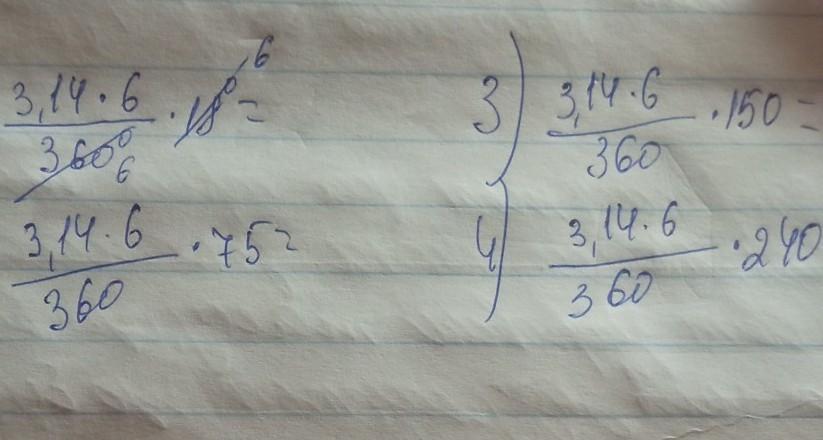 3,14 · 6 / 360° 6 · 18° 6 =
3) 3,14 · 6 / 360 · 150 =
3,14 · 6 / 360 · 75 =
4) 3,14 · 6 / 360 · 240